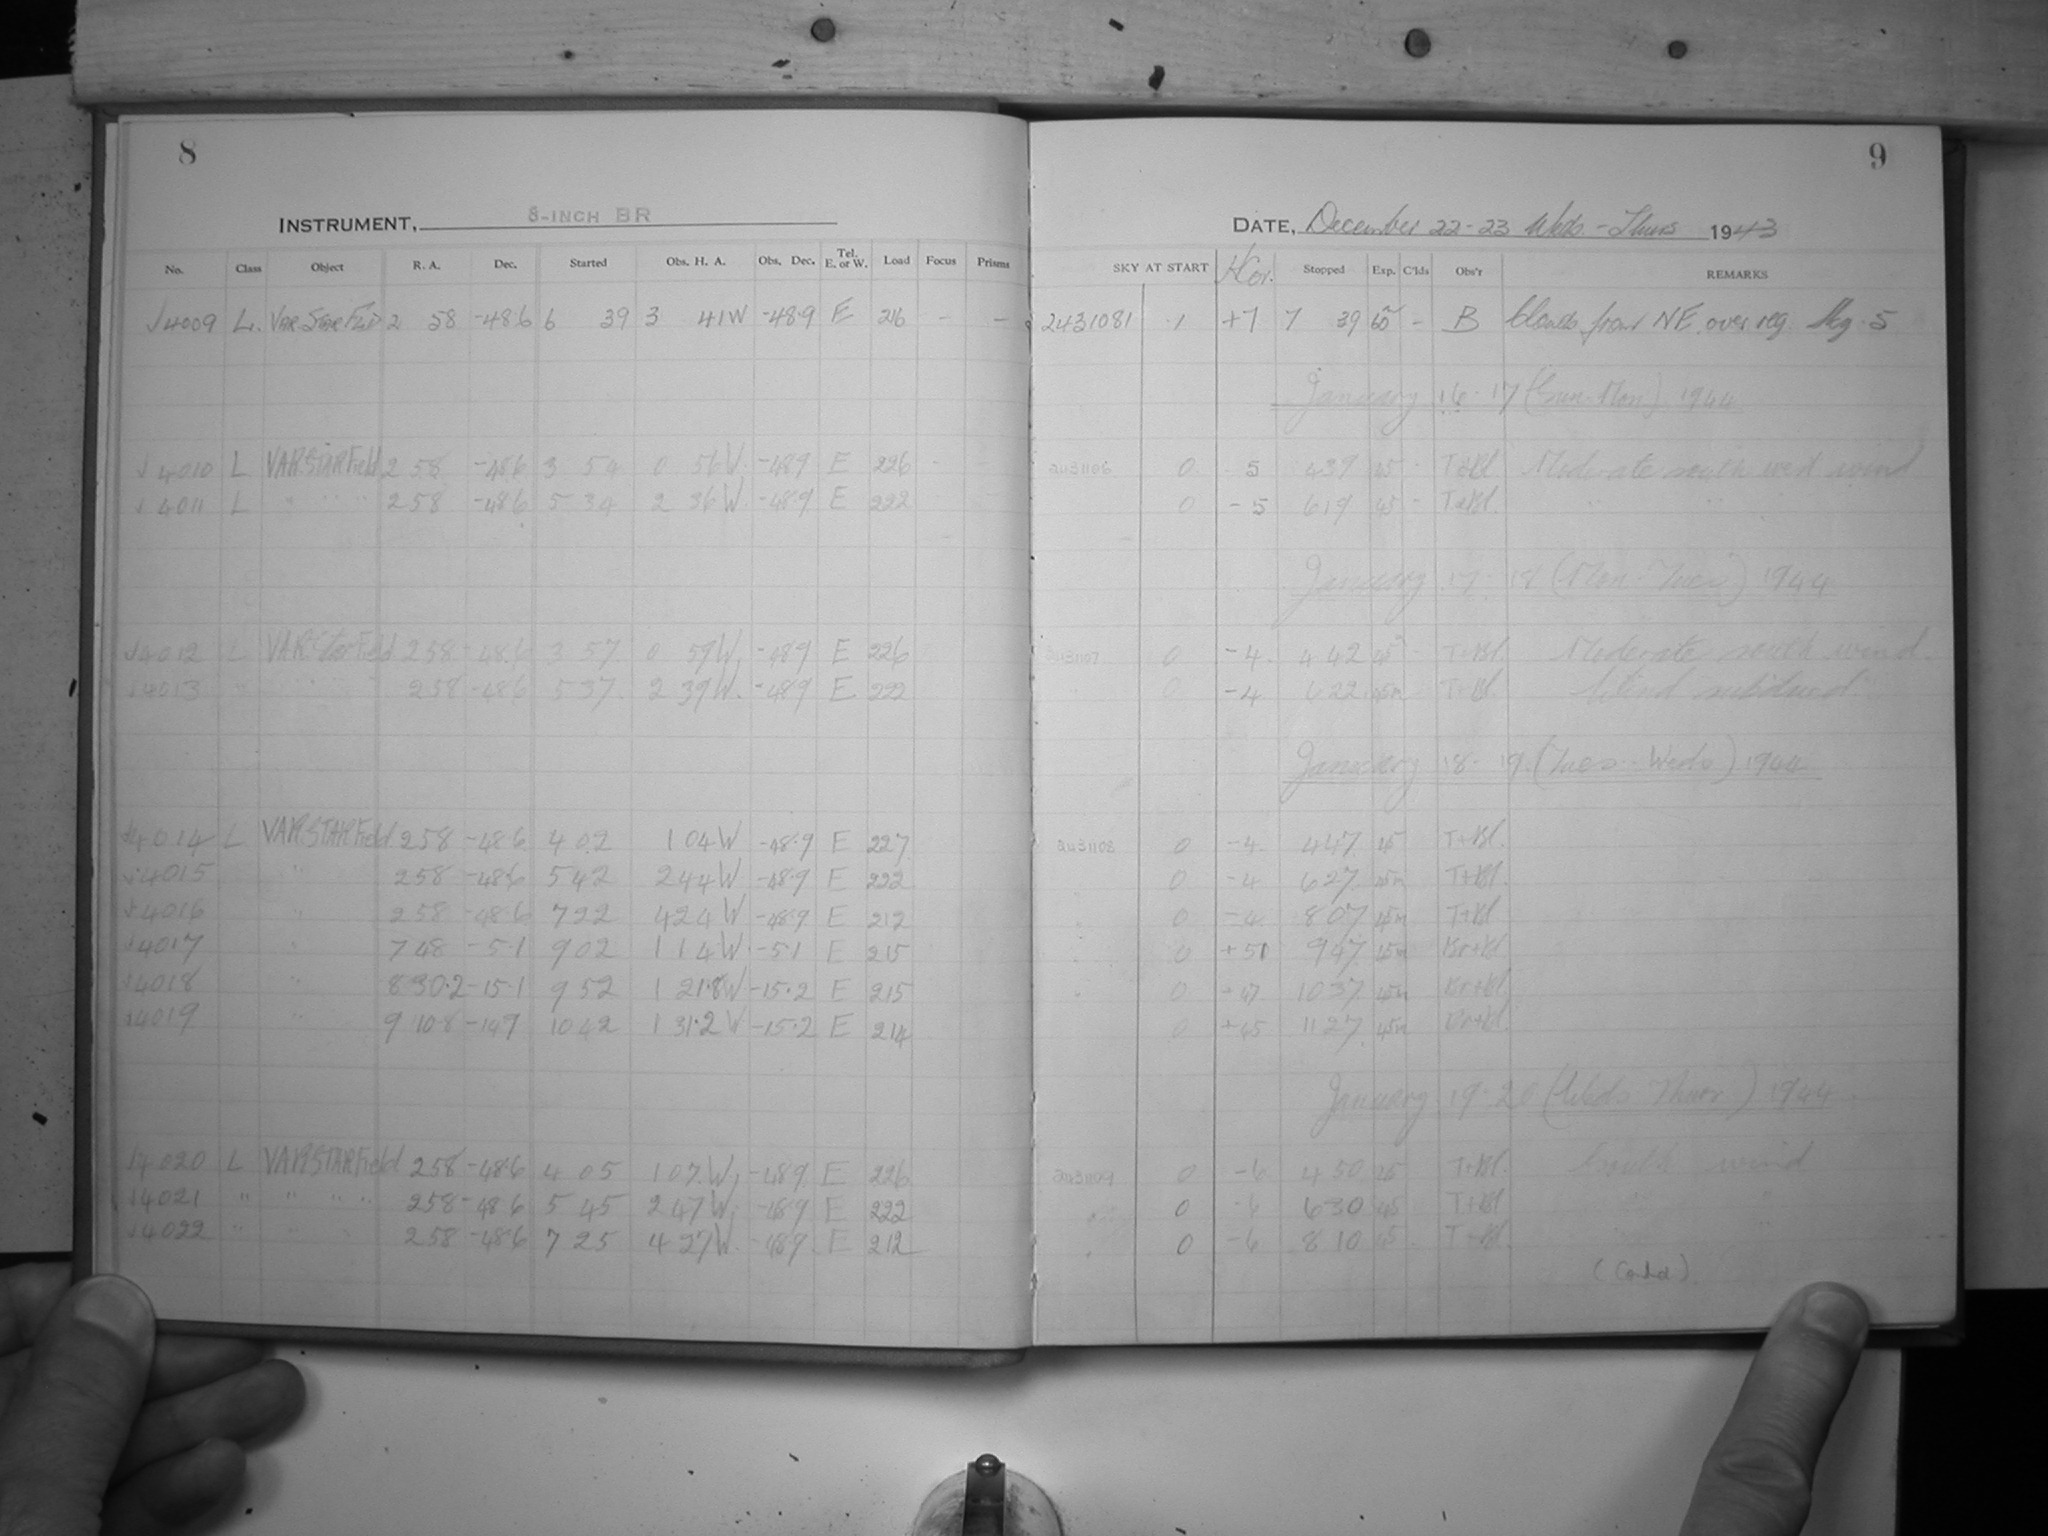 8
INSTRUMENT, 8-INCH BR
No. Class Object R. A. Dec. Started Obs. H. A. Obs. Dec. Tel. E. or W. Load Focus Prisms
√4009 L. VAR STAR FLD 2 58 -48.6 6 39 3 41W -48.9 E 216 - -
√4010 L VAR.STAR Field 2 58 -48.6 3 54 0 56W. -48.9 E 226 -
√4011 L " " " 2 58 -48.6 5 34 2 36W. -48.9 E 222
√4012 L VAR.Star Field 2 58 -48.6 3 57 0 59W. -48.9 E 226
√4013 " " " 2 58 -48.6 5 37. 2 39W. -48.9 E 222
√4014 L VAR.STAR Field 2 58 -48.6 4 02 1 04W -48.9 E 227
√4015 " 2 58 -48.6 5 42 2 44W -48.9 E 222
√4016 " 2 58 -48.6 7 22 4 24W -48.9 E 212
√4017 " 7 48 -5.1 9 02 1 14W -5.1 E 215
√4018 " 8 30.2 -15.1 9 52 1 21.8W -15.2 E 215
√4019 " 9 10.8 -14.9 10 42 1 31.2W -15.2 E 214
√4020 L VAR STAR Field 2 58 -48.6 4 05 1 07W. -48.9 E 226
√4021 " " " " 2 58 -48.6 5 45 2 47W. -48.9 E 222
√4022 " " " 2 58 -48.6 7 25 4 27W. -48.9 E 212
9
DATE, December 22-23 Weds.-Thurs 1943
SKY AT START Stopped Exp. C'lds Obs'r REMARKS
2431081 1 +7 7 39 60 - B Clouds from NE. over reg. 5
January 16-17 (Sun-Mon) 1944
2431106 0 5 4 39 45 - Moderate south wind
0 -5 6 19 45 -
January 17-18 (Mon-Tues) 1944
2431107 0 -4 4 42 45 T+Bl. Moderate south wind.
0 -4 6 22 45m T+Bl. Wind subsided.
January 18-19 (Tues-Weds) 1944
2431108 0 -4 4 47 45 T+Bl.
0 -4 6 27 45m T+Bl.
0 -4 8 07 45m T+Bl
0 +51 9 47 45m Br+Bl
0 10 37 45m Br+Bl
0 11 27 45m Br+Bl
January 19-20 (Weds-Thurs) 1944
2431109 0 -6 4 50 45 T+Bl. South wind
0 -6 6 30 45 T+Bl.
0 -6 8 10 45 T+Bl.
(Contd)